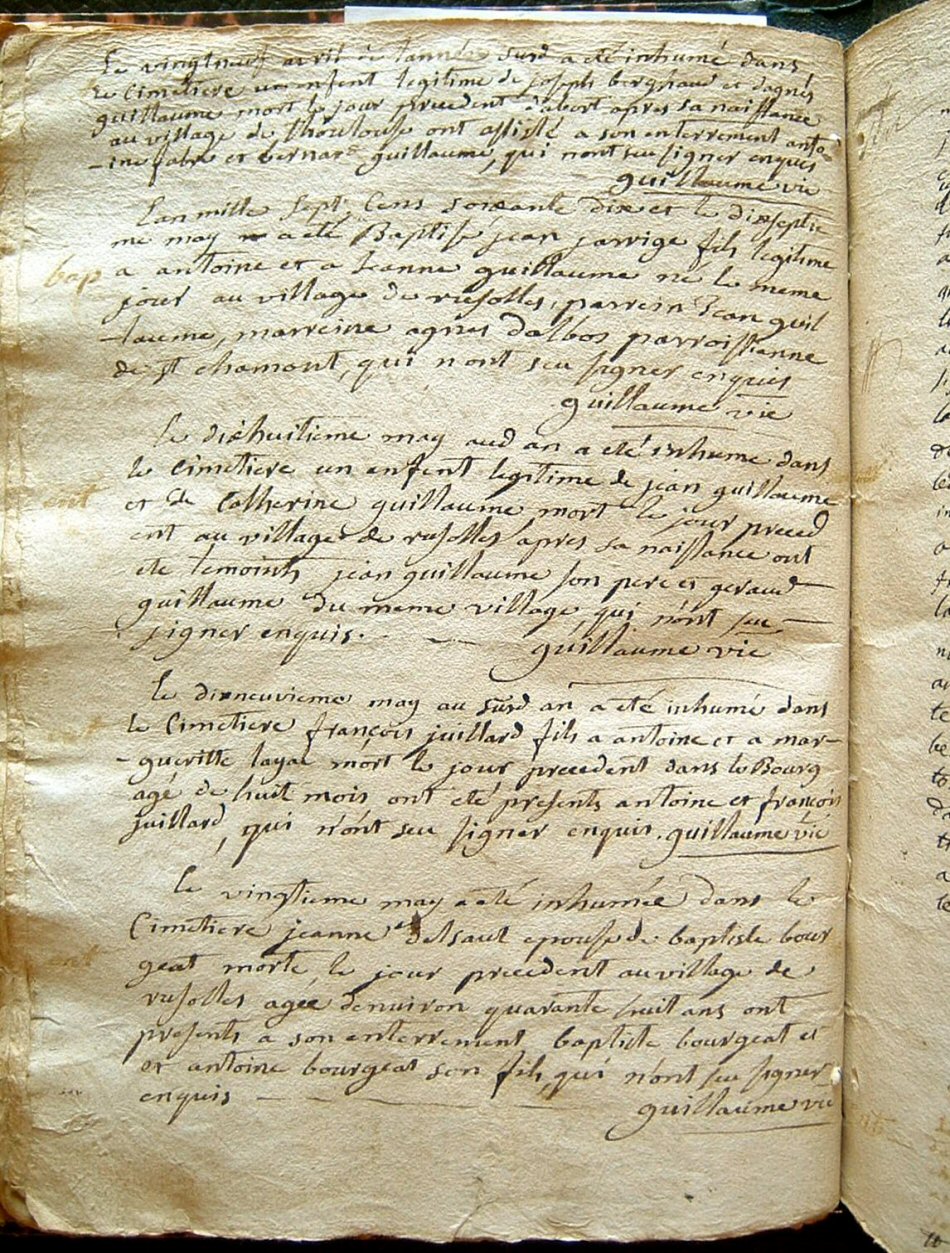 Le vingtneuf avril de lannée susd a été inhumé dans
le cimetiere un enfent legitime de joseph bergnaue et dagnes
guillaume mort le jour precedent dabort apres sa naissance
au village de thoulouse ont assisté a son enterrement anto-
-ine fabre et bernard guillaume, qui nont seu signer enquis
guillaume vic
Lan mille sept cens soixante dix et le dixseptie
me may a été Baptise jean jarrige fils legitime
bap
a antoine et a jeanne guillaume ne le meme
jour au village de rusolles, parrein jean guil
-laume, marreine agnes dalbos parroissienne
de st chamant, qui nont seu signer enquis
guillaume vic
le dixhuitieme may aud an a été inhume dans
le cimetiere un enfent legitime de jean guillaume
ent
et de Catherine guillaume mort le jour preced
ent au village de rusolles apres sa naissance ont
ete temoints jean guillaume son pere et geraud
guillaume du meme village, qui nont seu
signer enquis.
guillaume vic
le dixneuvieme may au susd an a eté inhumé dans
le Cimetiere françois juillard fils a antoine et a mar-
-gueritte layac mort le jour precedent dans le Bourg
agé de huit mois ont eté presents antoine et françois
juillard, qui nont seu signer enquis. guillaume vic
le vingtieme may a eté inhumée dans le
Cimetiere jeanne delsaut epouse de baptiste bour
geat morte le jour precedent au village de
rusolles agée denviron quarante huit ans ont
presents a son enterrement baptiste bourgeat et
et antoine bourgeat son fils, qui nont seu signer
enquis
guillaume vic